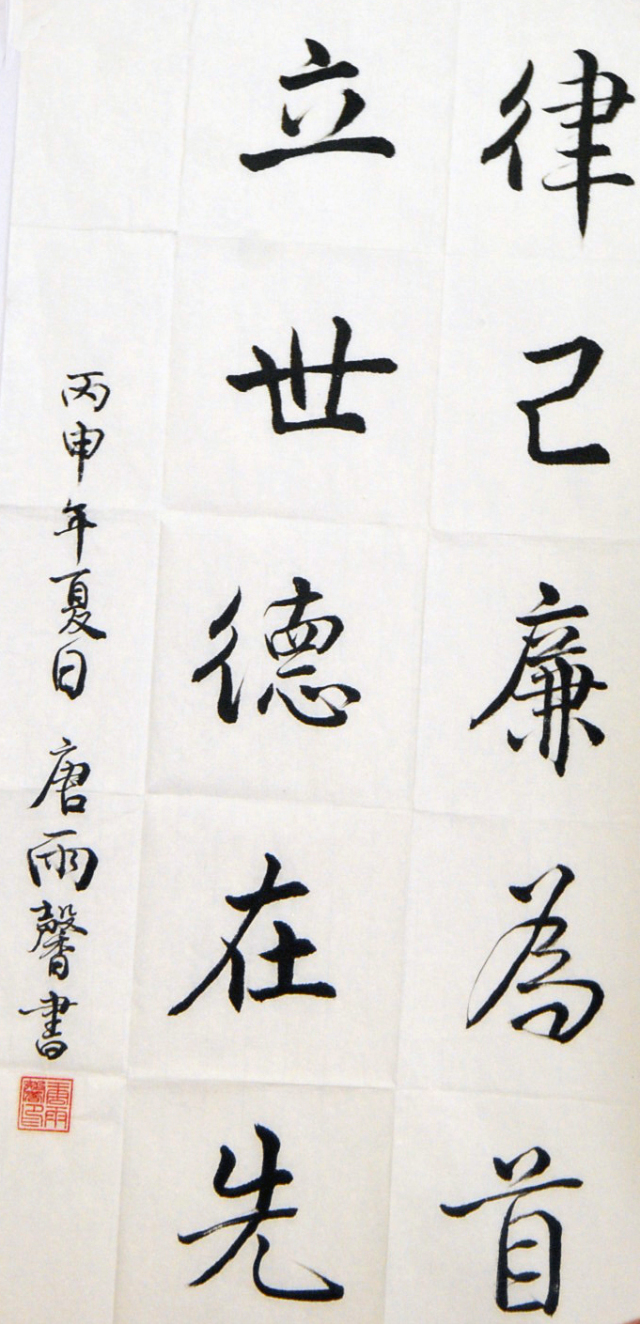 律己廉為首
立世德在先
丙申年夏日 唐雨馨書
唐雨馨印